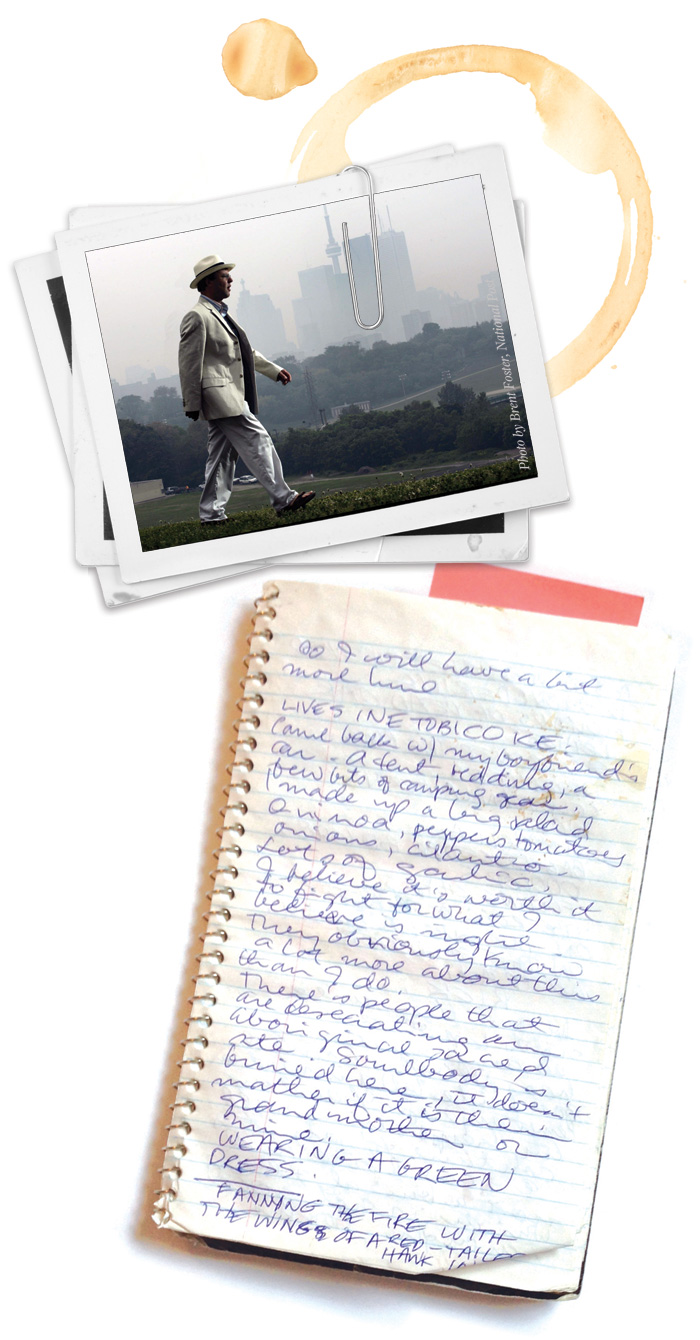 Photo by Brent Foster, National Post
So I will have a bit
more time
LIVES IN ETOBICOKE.
Came back w/ my boyfriend's
car. A tent, bedding, a
few bits of camping gear.
I made up a big salad
Quinoa, peppers, tomatoes
onions, cilantro.
Lots of garlic.
I believe it's worth it
to fight for what I
believe is
They obviously know
a lot more about this
than I do.
There is people that
are desecrating an
aboriginal sacred
site. Somebody is
buried here, it doesn't
matter if it is their
grandmother or
mine.
WEARING A GREEN
DRESS.
FANNING THE FIRE WITH
THE WINGS OF A RED-TAILED
HAWK